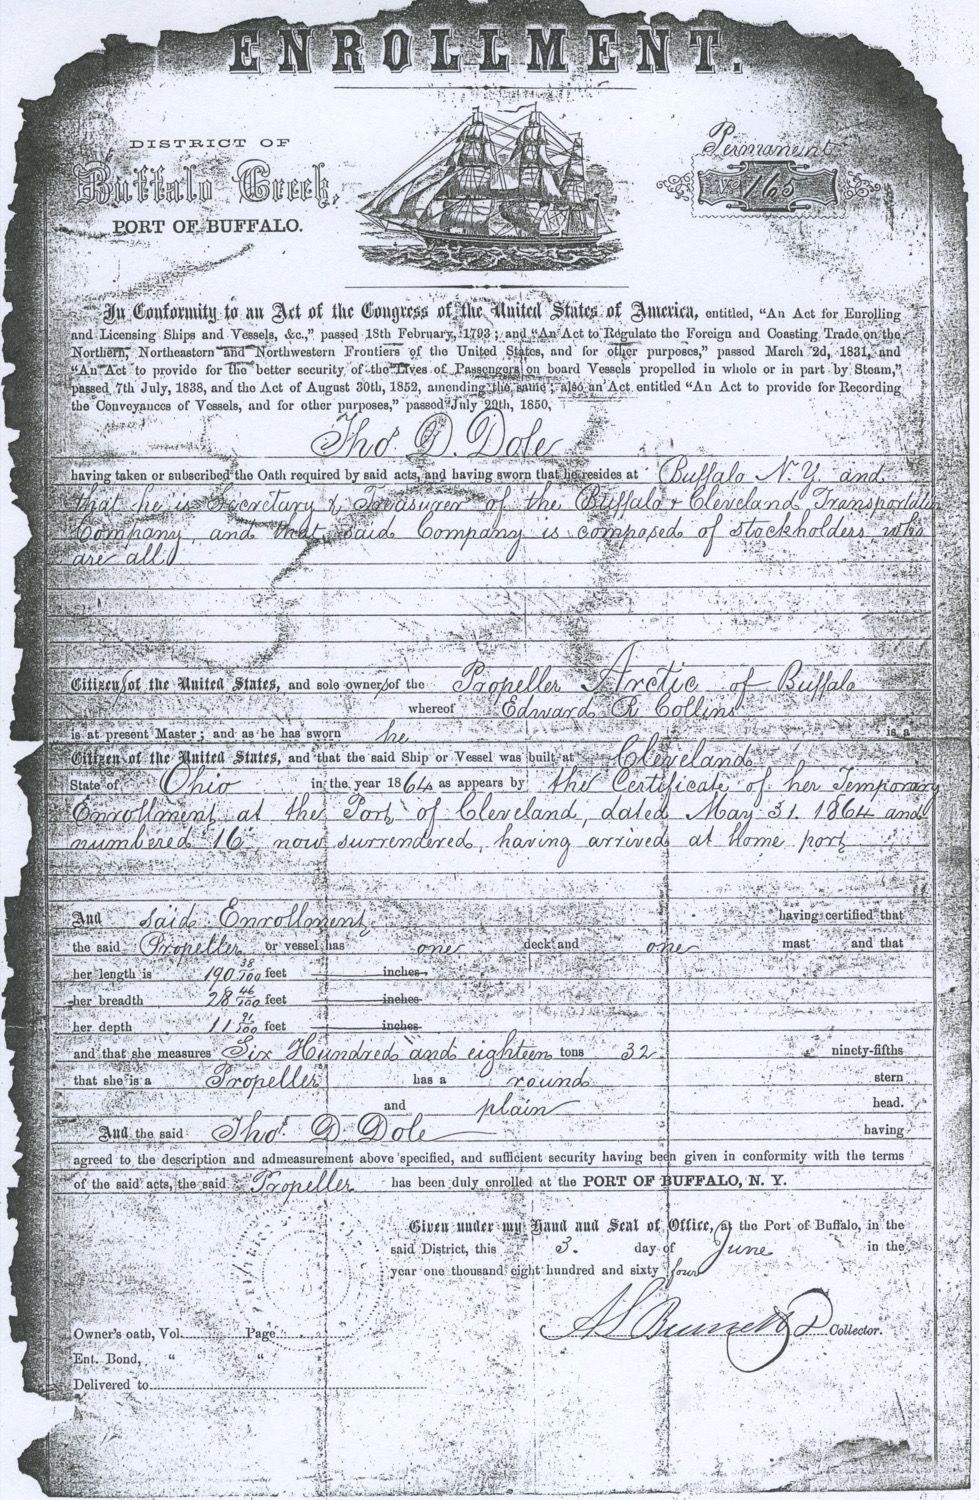 ENROLLMENT.
DISTRICT OF
Buffalo Creek,
PORT OF BUFFALO.
Permanent
No 163
In Conformity to an Act of the Congress of the United States of America, entitled, “An Act for Enrolling
and Licensing Ships and Vessels, &c.,” passed 18th February, 1793; and “An Act to Regulate the Foreign and Coasting Trade on the
Northern, Northeastern and Northwestern Frontiers of the United States, and for other purposes,” passed March 2d, 1831, and
“An Act to provide for the better security of the Lives of Passengers on board Vessels propelled in whole or in part by Steam,”
passed 7th July, 1838, and the Act of August 30th, 1852, amending the same; also an Act entitled “An Act to provide for Recording
the Conveyances of Vessels, and for other purposes,” passed July 29th, 1850,
Thos. D. Dole
having taken or subscribed the Oath required by said acts, and having sworn that he resides at Buffalo N.Y. and
that he is Secretary & Treasurer of the Buffalo & Cleveland Transportation
Company, and that said Company is composed of stockholders who
are all
Citizen of the United States, and sole owner of the Propeller Arctic of Buffalo
whereof Edward R. Collins
is at present Master; and as he has sworn he is a
Citizen of the United States, and that the said Ship or Vessel was built at Cleveland
State of Ohio in the year 1864 as appears by the Certificate of her Temporary
Enrollment at the Port of Cleveland, dated May 31. 1864 and
numbered 16 now surrendered, having arrived at home port
And said Enrollment having certified that
the said Propeller or vessel has one deck and one mast and that
her length is 190 38/100 feet inches
her breadth 28 46/100 feet inches
her depth 11 91/100 feet inches
and that she measures Six Hundred and eighteen tons 32 ninety-fifths
that she is a Propeller has a round stern
and plain head.
And the said Thos. D. Dole having
agreed to the description and admeasurement above specified, and sufficient security having been given in conformity with the terms
of the said acts, the said Propeller has been duly enrolled at the PORT OF BUFFALO, N. Y.
Given under my Hand and Seal of Office, at the Port of Buffalo, in the
said District, this 3. day of June in the
year one thousand eight hundred and sixty four
Collector.
Owner's oath, Vol. Page
Ent. Bond, “ “
Delivered to